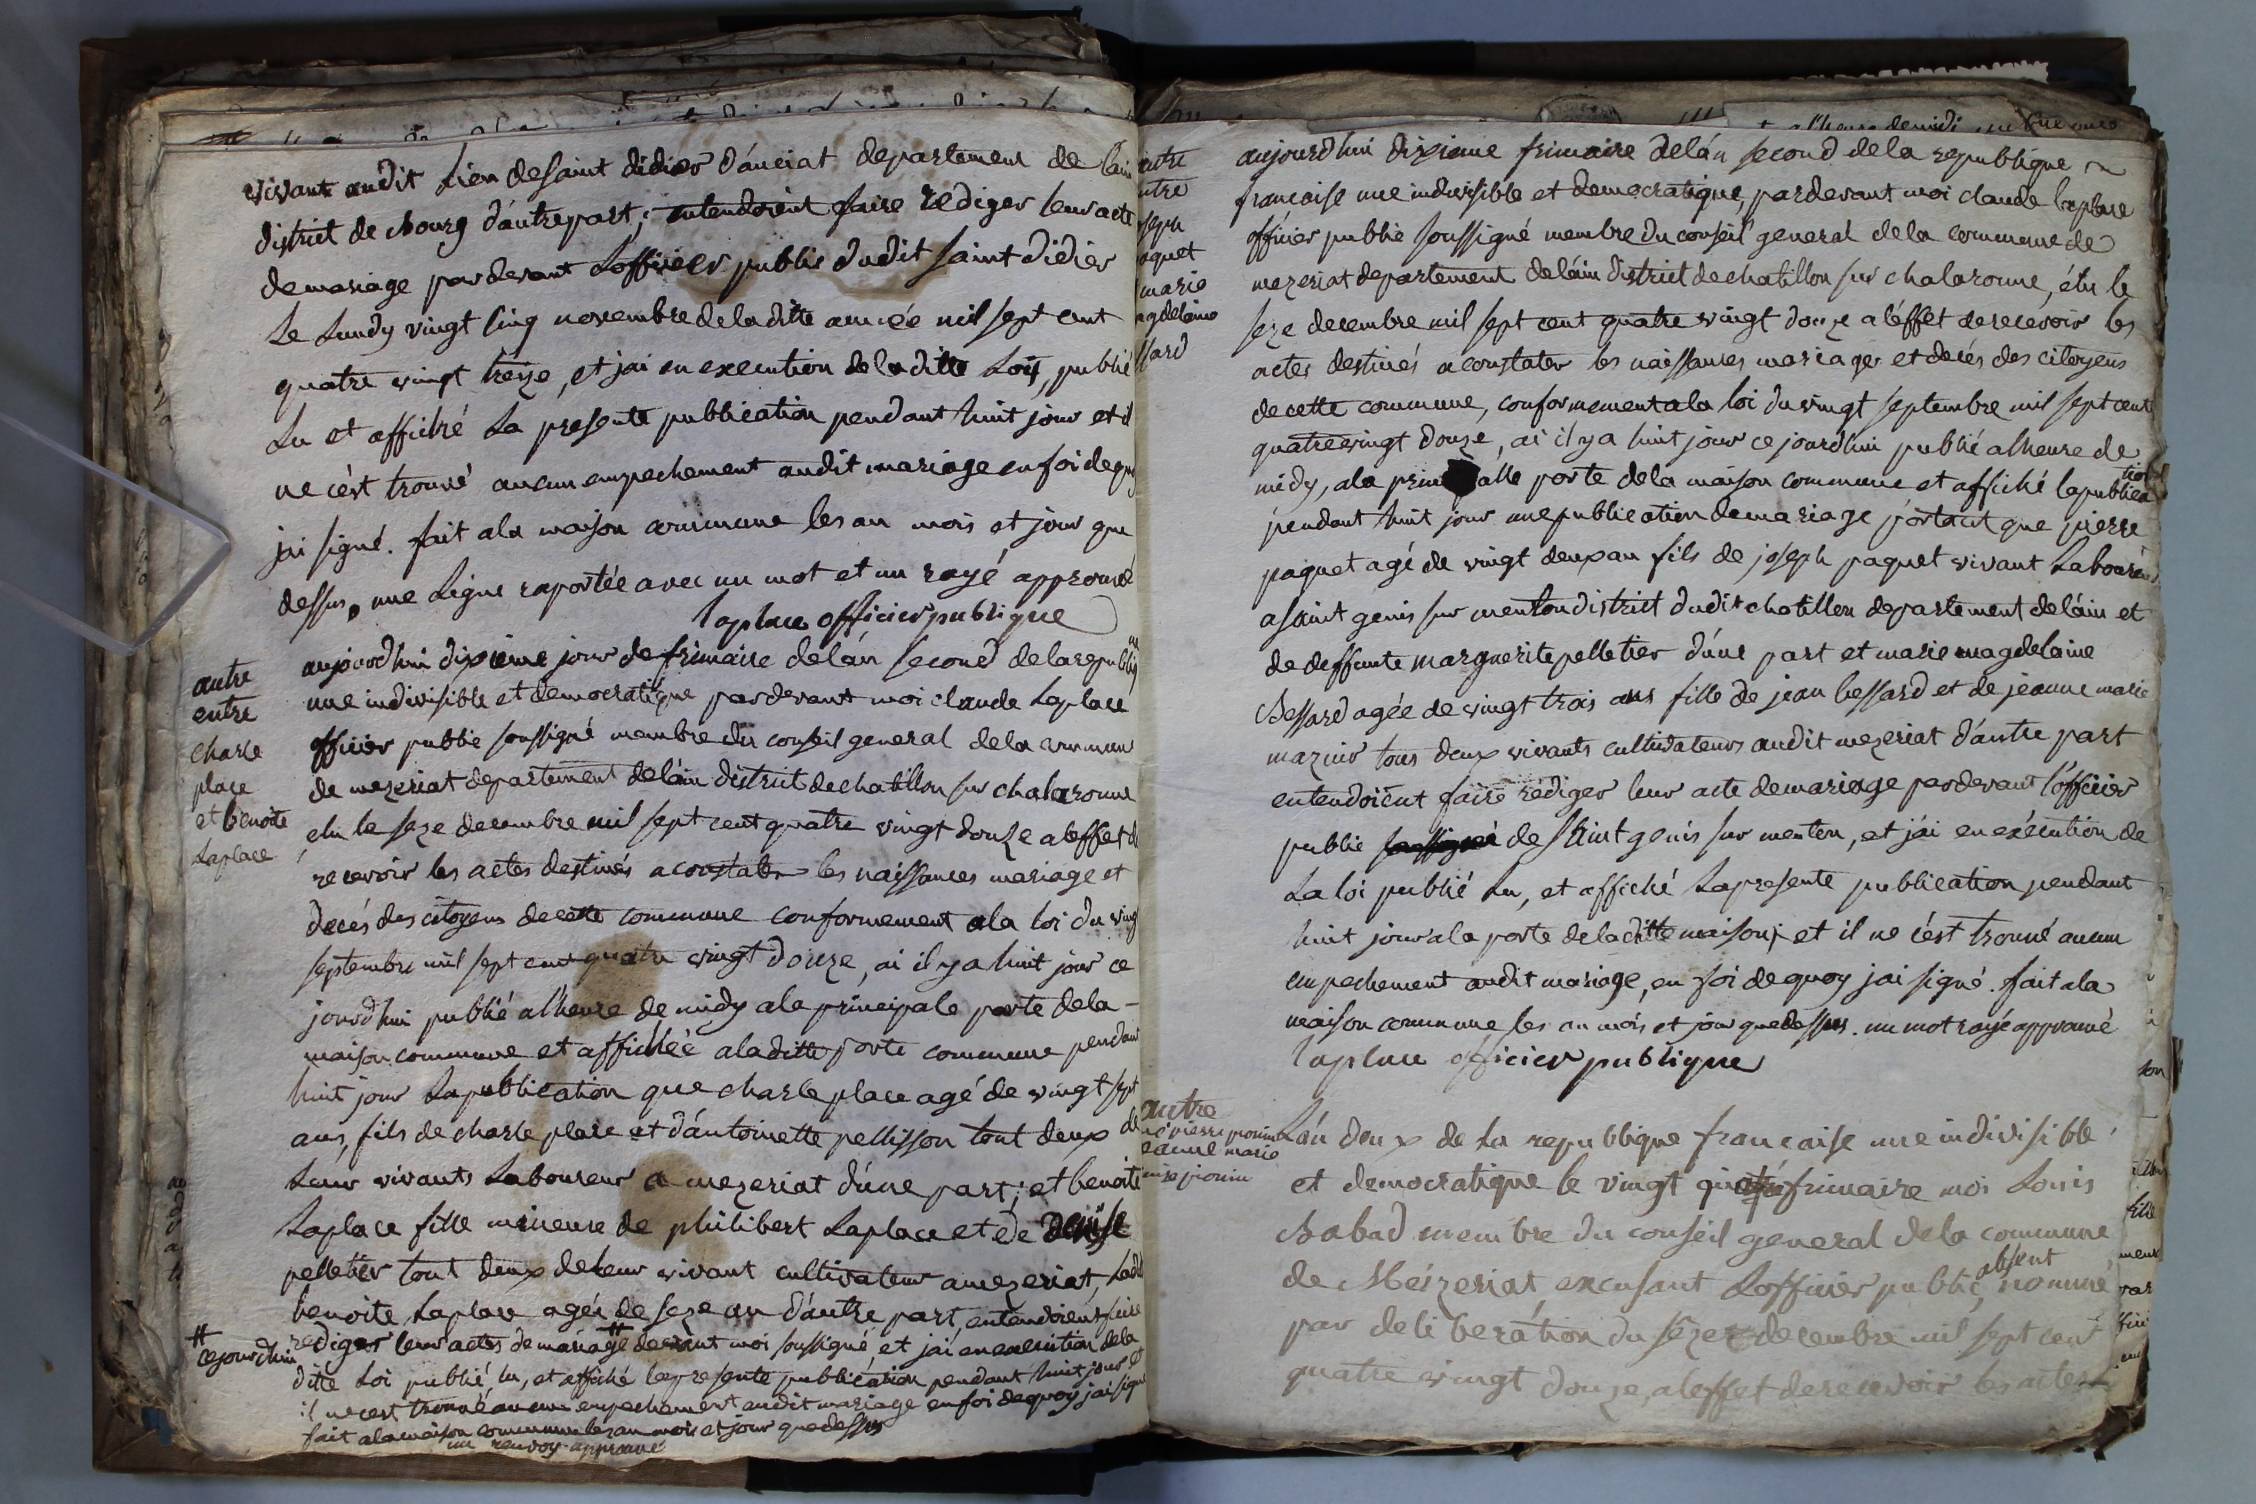 vivant audit Lieu de saint didier d'auciat departement de lain
district de bourg d'autre part; entendoient faire rediger leur acte
de mariage par devant L'officier public dudit saint didier
Le Lundy vingt cinq novembre de la ditte année mil sept cent
quatre vingt treize, et jai en execution de la ditte Loy, publié
Lu et affiché La presente publication pendant huit jour et il
ne cést trouvé aucun empechement audit mariage en foi de quoy
jai signé. fait ala maison commune les an mois et jour que
dessus, une Ligne raportée avec un mot et un rayé approuvé
laplace officier publique
autre
entre
charle
place
et benoite
Laplace
aujourdhui dixieme jour de frimaire de lán second de la republiq
une indivisible et democratique par devant moi claude Laplace
officier public soussigné membre du conseil general de la commune
de mezeriat departement de láin district de chatillon sur chalaronne
elu le seze decembre mil sept cent quatre vingt douze a leffet de
recevoir les actes destinés a constater les naissances mariage et
decés des citoyens de cette commune conformement ala loi du vingt
septembre mil sept cent quatre vingt douze, ai il y a huit jour ce
jourdhui publié alheure de midy ala principale porte de la -
maison commune et affichéé ala ditte porte commune pendant
huit jour La publication que charle place agé de vingt sept
ans, fils de charle place et dántoinette pellisson tout deux de
Leur vivants Laboureur a mezeriat dúne part; et benoite
Laplace fille mineure de philibert Laplace et de denise
pelletier tout deux de Leur vivant cultivateur a mezeriat, Ladit
benoite Laplace agée de seze an dáutre part, entendoient faire
# ce jourdhui
rediger leur actes de mariage # devant moi soussigné, et jai en execution de la
ditte Loi publié, lu, et affiché la presente publication pendant huit jour et
il ne cest trouvé aucun empechement audit mariage en foi de quoy jai signé
fait ala maison commune les an mois et jour que dessus
un renvoy approuvé
autre
entre
joseph
paquet
marie
magdelaine
bessard
aujourdhui dixieme frimaire de lán second de la republique
francaise une indivisible et democratique, par devant moi claude laplace
officier public soussigné membre du conseil general de la commune de
mezeriat departement de láin district de chatillon sur chalaronne, élu le
seze decembre mil sept cent quatre vingt douze a léffet de recevoir les
actes destinés a constater les naissances mariages et decés des citoyens
de cette commune, conformement ala loi du vingt septembre mil sept cent
quatre vingt douze, ai il y a huit jour ce jourdhui publié alheure de
midy, ala prin alle porte de la maison commune et affiché la publication
pendant huit jour une publication de mariage portant que pierre
paquet agé de vingt deux an fils de joseph paquet vivant Laboureur
a saint genis sur menton district dudit chatillon departement de láin et
de deffunte marguerite pelletier dúne part et marie magdelaine
Bessard agée de vingt trois ans fille de jean bessard et de jeanne marie
mazuir tous deux vivants cultivateurs audit mezeriat dáutre part
entendoient faire rédiger leur acte de mariage par devant lófficier
public soussigné de Saint genis sur menton, et jái en exécution de
La loi publié Lu, et affiché La presente publication pendant
huit jour ala porte de la ditte maison; et il ne cést trouvé aucun
empechement audit mariage, en foi de quoy jai signé. fait ala
maison commune les an mois et jour que dessus. un mot rayé approuvé
laplace officier publique
autre
pierre
jeanne marie
Lán deux de La republique francaise une indivisible
et democratique le vingt quatre frimaire moi Louis
Babad membre du conseil general de la commune
de Meizeriat excusant Lofficier public absent, nommé
par deliberátion du sêze decembre mil sept cent
quatre vingt douze, a leffet de recevoir les actes